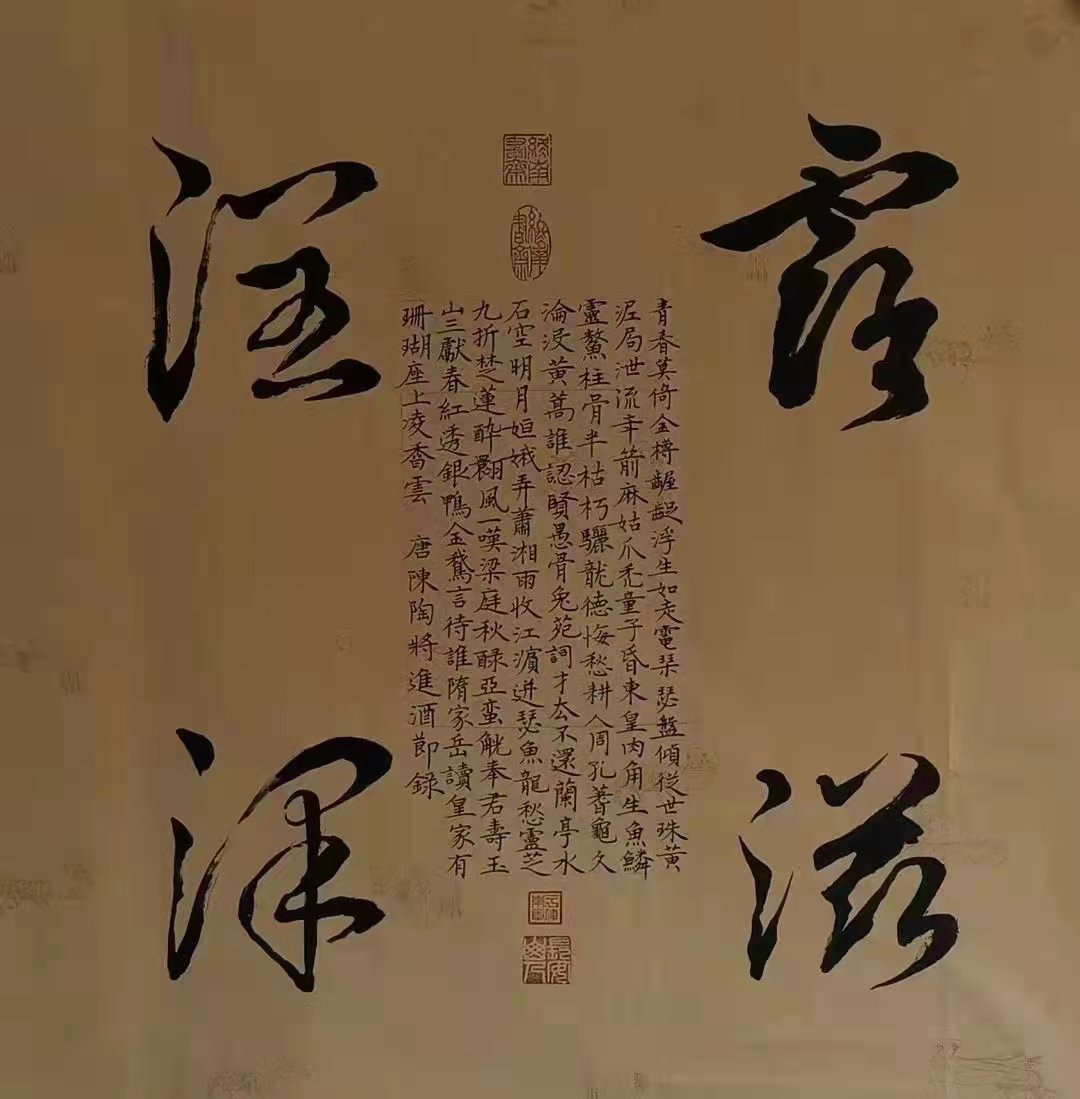 露滋
潤澤
終南書齋
終南書齋
青春莫倚金樽齷齪浮生如走電琹瑟盤傾從世珠黃
泥局泄流年箭麻姑爪禿童子昏東皇肉角生魚鱗
靈鰲柱骨半枯朽驪龍德悔愁耕人周孔蓍龜久
淪没黃蒿誰認賢愚骨兔苑詞才去不還蘭亭水
石空明月姮娥弄蕭湘雨收江濱迸瑟魚龍愁靈芝
九折楚蓮醉翾風一嘆梁庭秋醁亞蠻觥奉君壽玉
山三獻春紅透銀鴨金鵞言待誰隋家岳讀皇家有
珊瑚座上凌香雲 唐陳陶將進酒節録